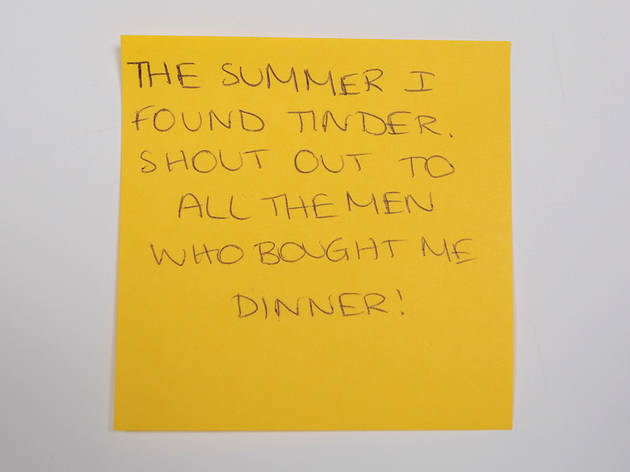 THE SUMMER I
FOUND TINDER.
SHOUT OUT TO
ALL THE MEN
WHO BOUGHT ME
DINNER!